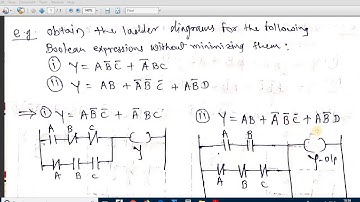 e.g: obtain the ladder diagrams for the following
Boolean expressions without minimizing them:
i) Y = AB̅C̅ + A̅BC
ii) Y = AB + A̅B̅C̅ + AB̅D
⇒ i) Y = AB̅C̅ + A̅BC
ii) Y = AB + A̅B̅C̅ + AB̅D
A B C
Y
A B C
A B
Y-o/p
A B C